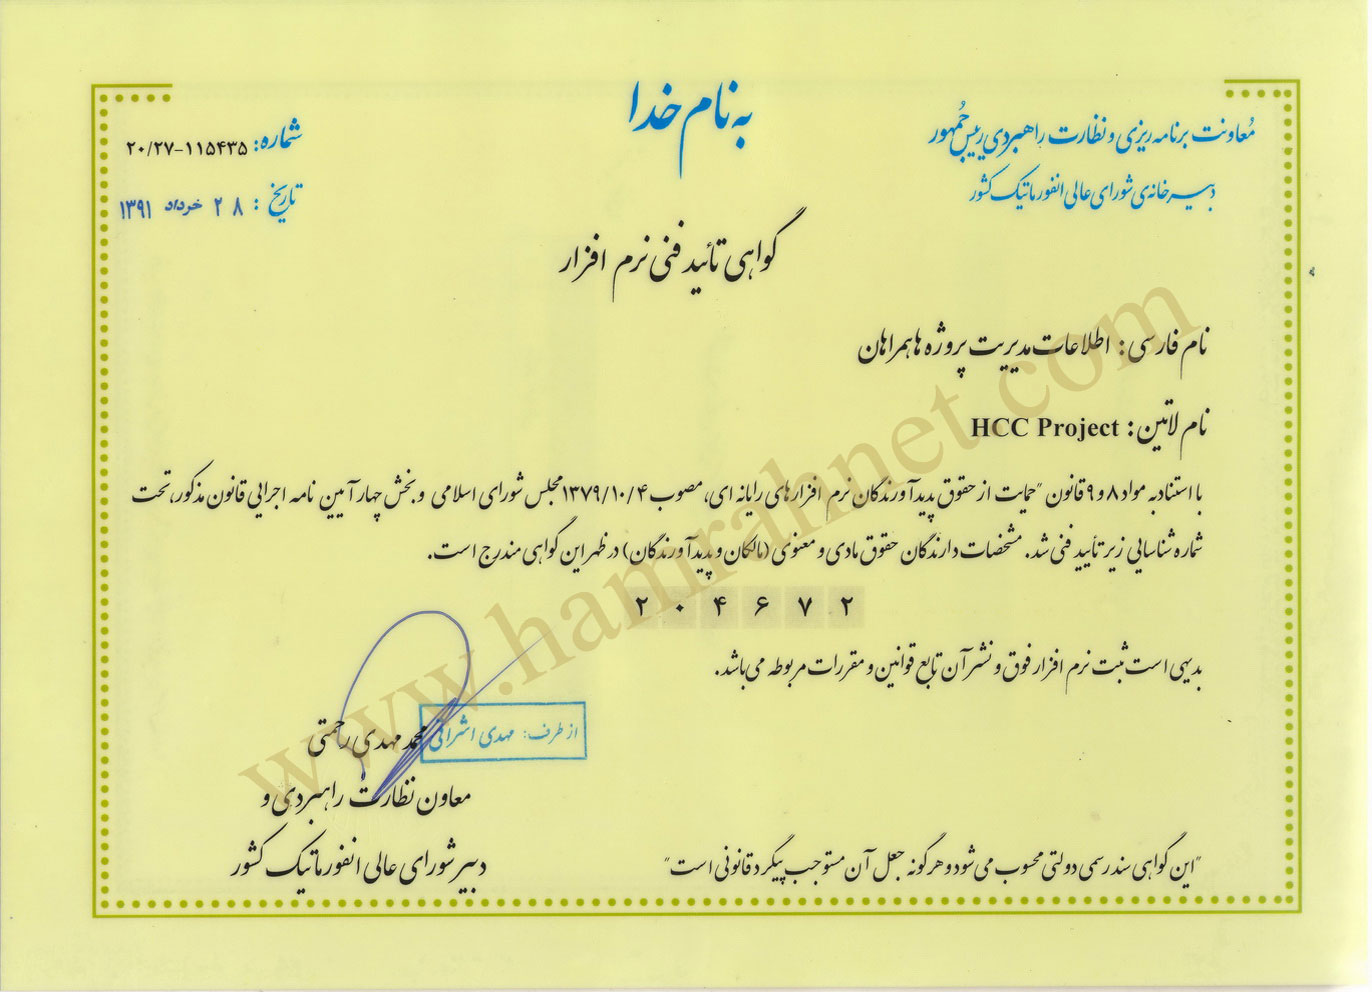 به نام خدا
معاونت برنامه ریزی و نظارت راهبردی رییس جمهور
دبیرخانه‌ی شورای عالی انفورماتیک کشور
شماره: ۲۰/۲۷-۱۱۵۴۳۵
تاریخ: ۲۸ خرداد ۱۳۹۱
گواهی تائید فنی نرم افزار
نام فارسی: اطلاعات مدیریت پروژه ها همراهان
نام لاتین: HCC Project
با استناد به مواد ۸ و ۹ قانون "حمایت از حقوق پدیدآورندگان نرم افزارهای رایانه ای، مصوب ۱۳۷۹/۱۰/۴ مجلس شورای اسلامی و بخش چهار آیین نامه اجرایی قانون مذکور، تحت
شماره شناسایی زیر تأیید فنی شد. مشخصات دارندگان حقوق مادی و معنوی (مالکان و پدیدآورندگان) در ظهر این گواهی مندرج است.
۲۰۴۶۷۲
بدیهی است ثبت نرم افزار فوق و نشر آن تابع قوانین و مقررات مربوطه می باشد.
از طرف: مهدی اشراقی
محمد مهدی رحمتی
معاون نظارت راهبردی و
دبیر شورای عالی انفورماتیک کشور
"این گواهی سند رسمی دولتی محسوب می شود و هرگونه جعل آن مستوجب پیگرد قانونی است"
www.hamrahnet.com